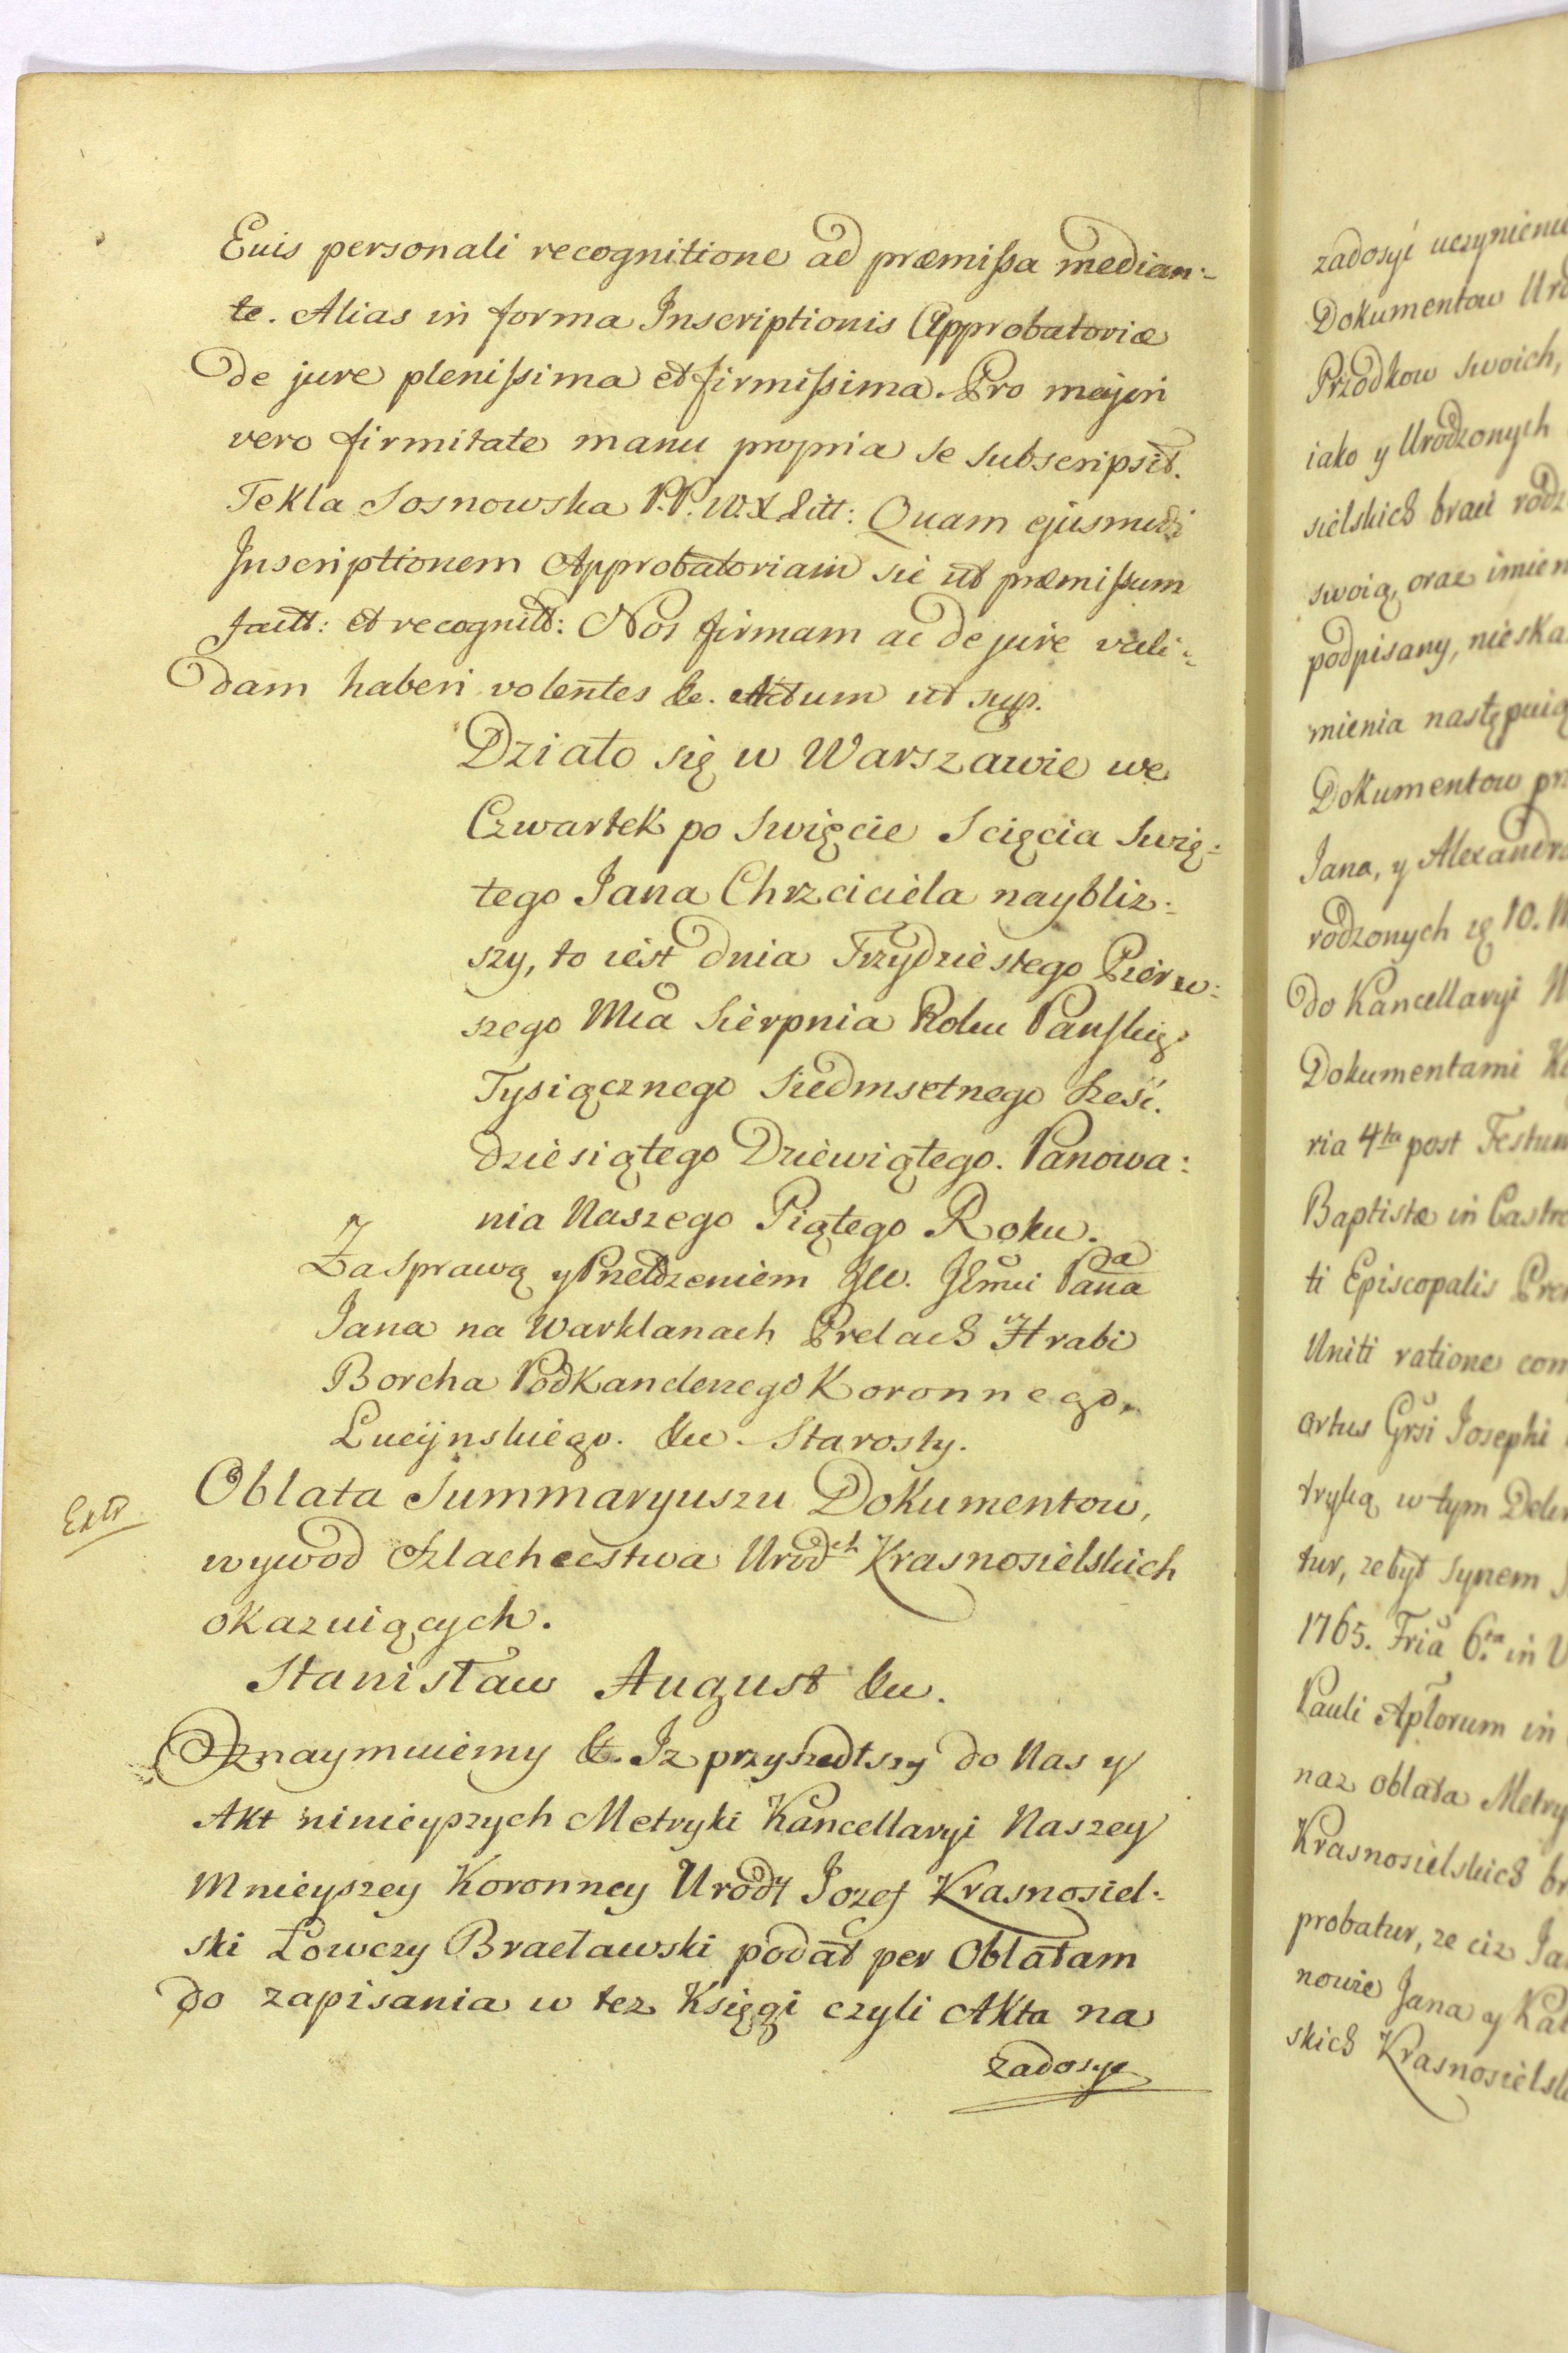 Euis personali recognitione ad præmissa median-
te. Alias in forma Inscriptionis Approbatoriæ
de jure plenissima et firmissima. Pro majori
vero firmitate manu propria se subscripsit.
Tekla Sosnowska P.P.W.X Litt: Quam ejusmodi
Inscriptionem Approbatoriam sic ut præmissum
factt: et recognitt: Nos firmam ac de jure vali-
dam haberi volentes &c. Actum ut sup.
Działo się w Warszawie we
Czwartek po Swięcie Scięcia Swię-
tego Jana Chrzciciela naybliz-
szy, to iest dnia Trzydziestego Pierw-
szego Mca Sierpnia Roku Pańskieg
Tysiącznego Siedmsetnego Sześć.
dziesiątego Dziewiątego. Panowa:
nia Naszego Piątego Roku.
Za Sprawą y Przełdzeniem JW. JEmci Pana
Jana na Warklanach Prelach Hrabi
Borcha Podkanclerzego Koronnego,
Lucynskiego. &c. Starosty.
Extr
Oblata Summaryuszu Dokumentow,
wywod Szlachectwa Urodch Krasnosielskich
okazuiących.
Stanisław August &c.
Oznaymuiemy &. Iz przyszedłszy do Nas y
Akt ninieyszych Metryki Kancellaryi Naszey
Mnieyszey Koronney Urodz Jozef Krasnosiel-
ski Łowczy Bracławski podał per Oblatam
do zapisania w tez Księgi czyli Akta na
zadosyc
zadosyć uczynienie
Dokumentow
Przodkow swoich,
iako y Urodzonych
sielskich braci
swoią, oraz
podpisany,
mienia
Dokumentow
Jana, y
rodzonych 10.
do Kancellaryi
Dokumentami
ria 4ta post
Baptistæ in
ti Episcopalis
Uniti ratione
ortus Grsi Josephi
tryką w tym
tur, ze był Synem
1765. Fria 6ta in
Pauli Aptorum in
naz oblata
Krasnosielskich
probatur, ze ciz
nowie Jana y
skich